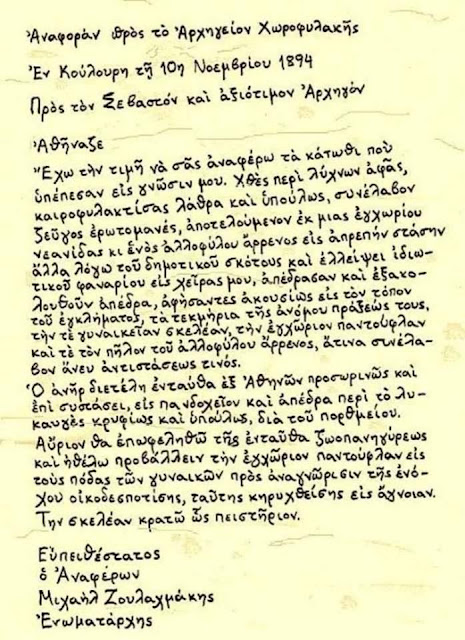 Ἀναφορὰν πρὸς τὸ Ἀρχηγεῖον Χωροφυλακῆς
Ἐν Κούλουρη τῇ 10η Νοεμβρίου 1894
Πρὸς τὸν Σεβαστόν καὶ ἀξιότιμον Ἀρχηγόν
Ἀθήναζε
Ἔχω τὴν τιμὴ νὰ σᾶς ἀναφέρω τὰ κάτωθι ποὺ
ὑπέπεσαν εἰς γνῶσιν μου. Χθὲς περὶ λύχνων ἀφᾶς,
καιροφυλακτίσας λάθρα καὶ ὑπούλως, συνέλαβον
ζεῦγος ἐρωτομανές, ἀποτελούμενον ἐκ μιας ἐγχωρίου
νεανίδας κι ἑνὸς ἀλλοφύλου ἄρρενος εἰς ἀπρεπήν στάσην
ἀλλα λόγω τοῦ δημοτικοῦ σκότους καὶ ἐλλείψει ἰδιω-
τικοῦ φαναρίου εἰς χεῖρας μου, ἀπέδρασαν καὶ ἐξακο-
λουθοῦν ἀπέδρα, ἀφήσαντες ἀκουσίως εἰς τὸν τόπον
τοῦ ἐγκλήματος, τὰ τεκμήρια τῆς ἀνόμου πράξεώς τους,
τὴν τὲ γυναικεῖαν σκελέαν, τὴν ἐγχώριον παντούφλαν
καὶ τὲ τὸν πῆλον τοῦ ἀλλοφύλου ἄρρενος, ἄτινα συνέλα-
βον ἄνευ ἀντιστάσεως τινός.
Ὁ ἀνὴρ διετέλη ἐνταύθα ἐξ Ἀθηνῶν προσωρινῶς καὶ
ἐπὶ συστάσει, εἰς πανδοχεῖον καὶ ἀπέδρα περὶ τὸ λυ-
καυγὲς κρυφίως καὶ ὑπούλως, διὰ τοῦ πορθμείου.
Αὔριον θα ἐπωφεληθῶ τῆς ἐνταῦθα ζωοπανηγύρεως
καὶ ἠθέλω προβάλλειν τὴν ἐγχώριον παντούφλαν εἰς
τοὺς πόδας τῶν γυναικῶν πρὸς ἀναγνώρισιν τῆς ἐνό-
χου οἰκοδεσποτίσης, ταύτης κηρυχθείσης εἰς ἄγνοιαν.
Την σκελέαν κρατῶ ὡς πειστήριον.
Εὐπειθέστατος
ὁ Ἀναφέρων
Μιχαὴλ Ζουλαχμάκης
Ἐνωματάρχης